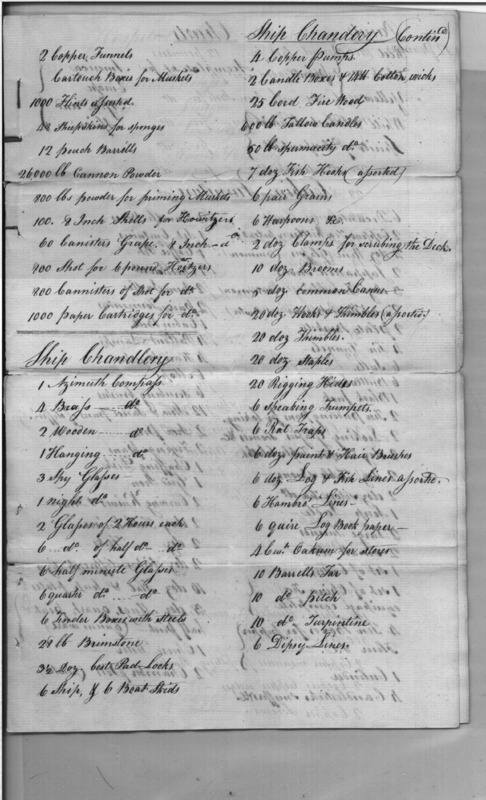 2 Copper Funnels
Cartouch Boxes for Muskets
1000 Flints assorted
48 Sheepskins for sponges
12 pouch Barrells
26000 lb Cannon Powder
800 lbs powder for priming Muskets
100. 8 Inch Shells for Howitzers
60 Canisters Grape 8 Inch do
900 Shot for 6 pound
800 Cannisters of Shot for do
1000 paper Cartridges for do
Ship Chandlery
1 Azimuth Compass
4 Brass do
2 Wooden do
1 Hanging do
3 Spy Glasses
1 night do
2 Glasses of 2 Hours each
6 do of half do do
6 half minute Glasses
6 quarter do do
6 Tinder Boxes with Steels
28 lb Brimstone
3½ Doz best Pad Locks
6 Ship, & 6 Boat Skids
Ship Chandlery (Contind)
4 Copper Pumps
2 Candle Boxes & Cotton wicks
25 Cord Fire Wood
600 lb Tallow Candles
50 lb spermacity do
7 doz Fish Hooks (assorted)
6 pair Grains
6 Harpoons &c.
2 doz Clamps for scrubing the Deck
10 doz Brooms
doz common
20 doz Hooks & Thimbles (assorted)
20 doz Thimbles
20 doz Staples
20 Rigging Hides
6 Speaking Trumpets
6 Rat Traps
6 doz paint & Hair Brushes
6 doz Log & Fish Lines assorted
6 Hambro' Lines
6 quire Log Book paper
4 Cwt Oakum for stores
10 Barrells Tar
10 do pitch
10 do Turpintine
6 Dipsy Lines